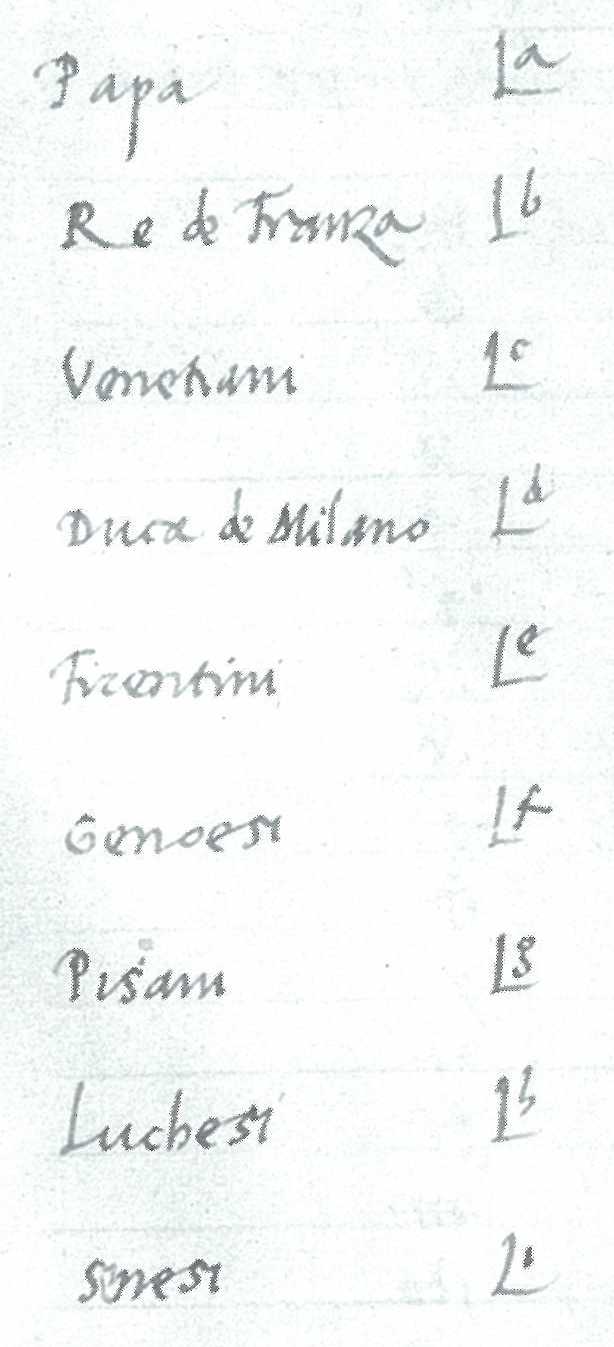 Papa L^a
Re de Franza L^b
Venetiani L^c
Duca de Milano L^d
Firentini L^e
Genoesi L^f
Pisani L^g
Luchesi L^h
Senesi L^i